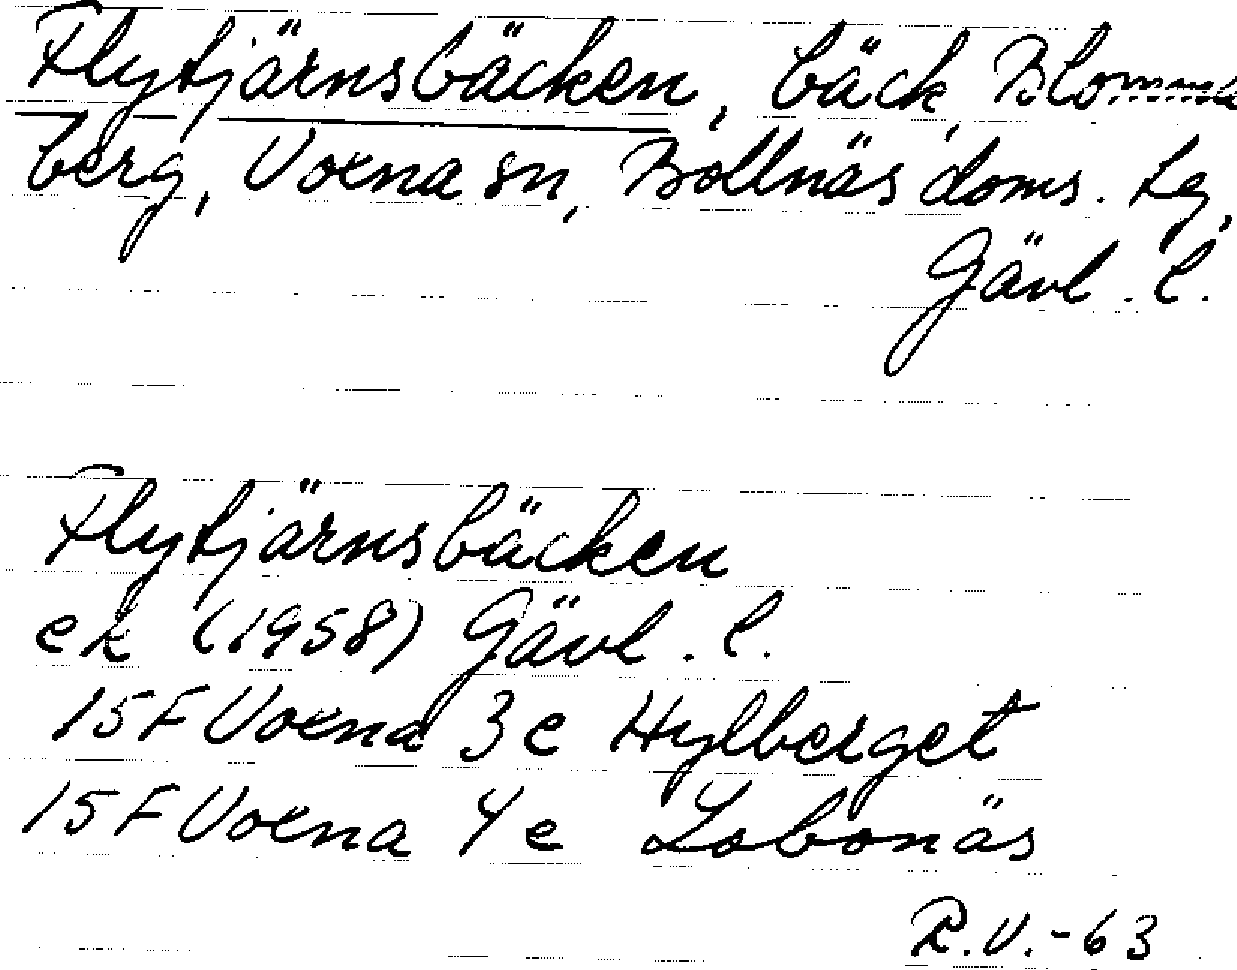 Flytjärnsbäcken, bäck, Blomma
berg, Voxna sn, Bollnäs doms. Lg,
Gävl. l.
Flytjärnsbäcken
ek (1958) Gävl. l.
15F Voxna 3e Hylberget
15F Voxna 4e Lobonäs
R.V.-63